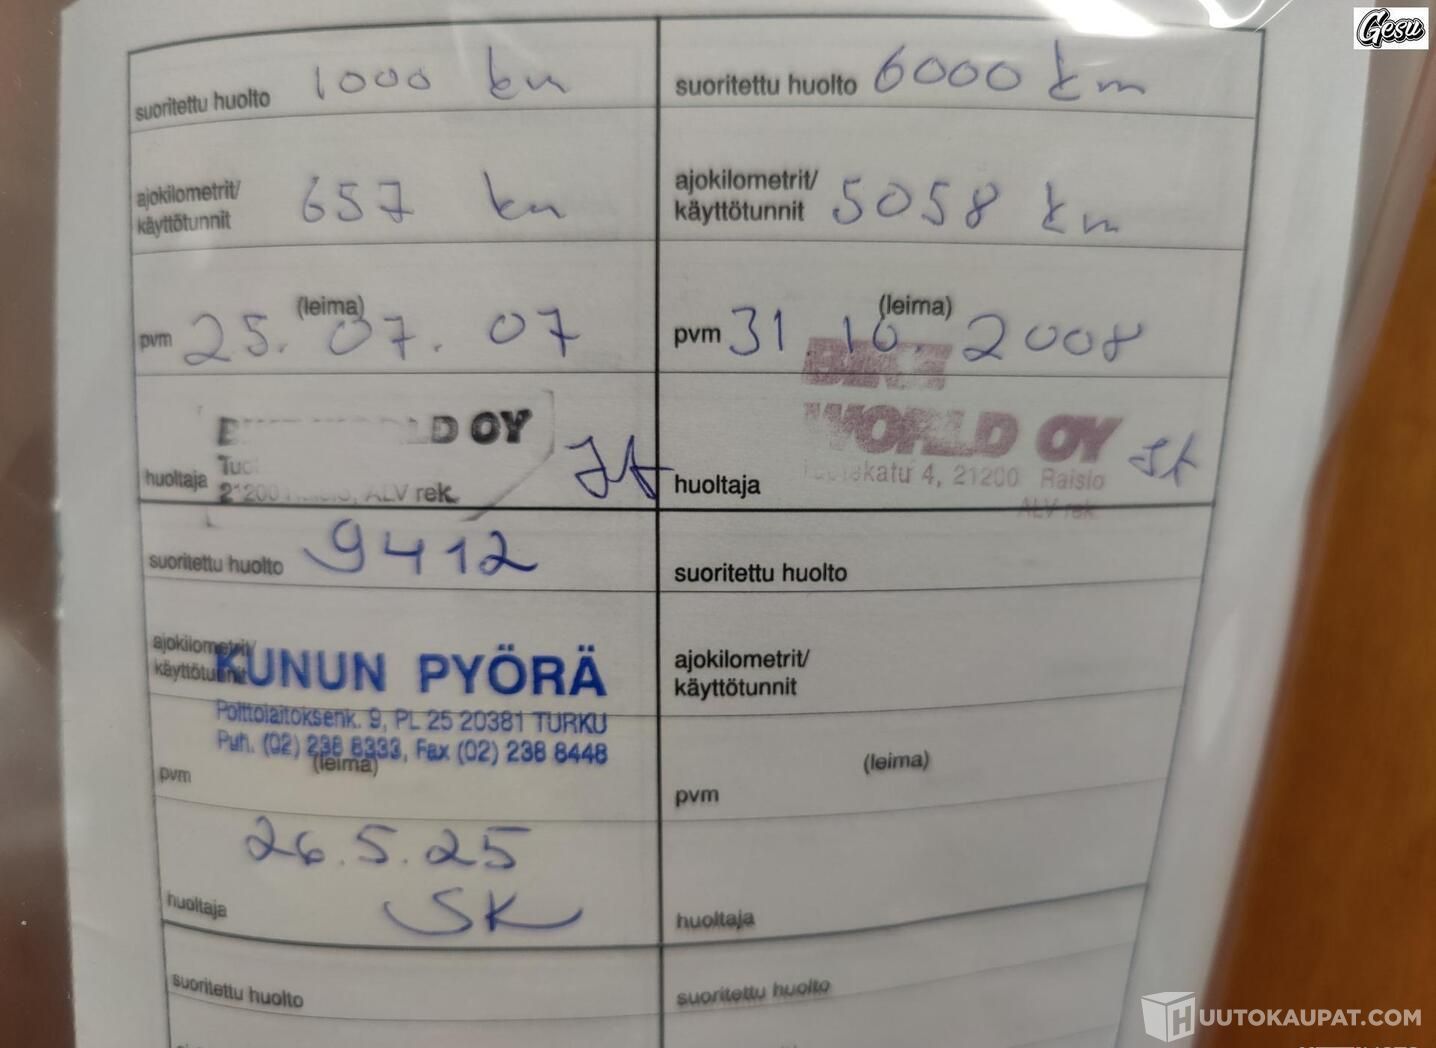 Gesu
suoritettu huolto 1000 km
ajokilometrit/
käyttötunnit 657 km
(leima)
pvm 25. 07. 07
LD OY
huoltaja
21200 Raisio, ALV rek.
suoritettu huolto 6000 km
ajokilometrit/
käyttötunnit 5058 km
(leima)
pvm 31 10. 2008
BIKE
WORLD OY
katu 4, 21200 Raisio
ALV rek.
huoltaja
suoritettu huolto 9412
ajokilometrit/
käyttötunnit
KUNUN PYÖRÄ
Polttolaitoksenk. 9, PL 25 20381 TURKU
Puh. (02) 238 8333, Fax (02) 238 8448
(leima)
pvm
26.5.25
huoltaja SK
suoritettu huolto
ajokilometrit/
käyttötunnit
(leima)
pvm
huoltaja
suoritettu huolto
suoritettu huolto
HUUTOKAUPAT.COM